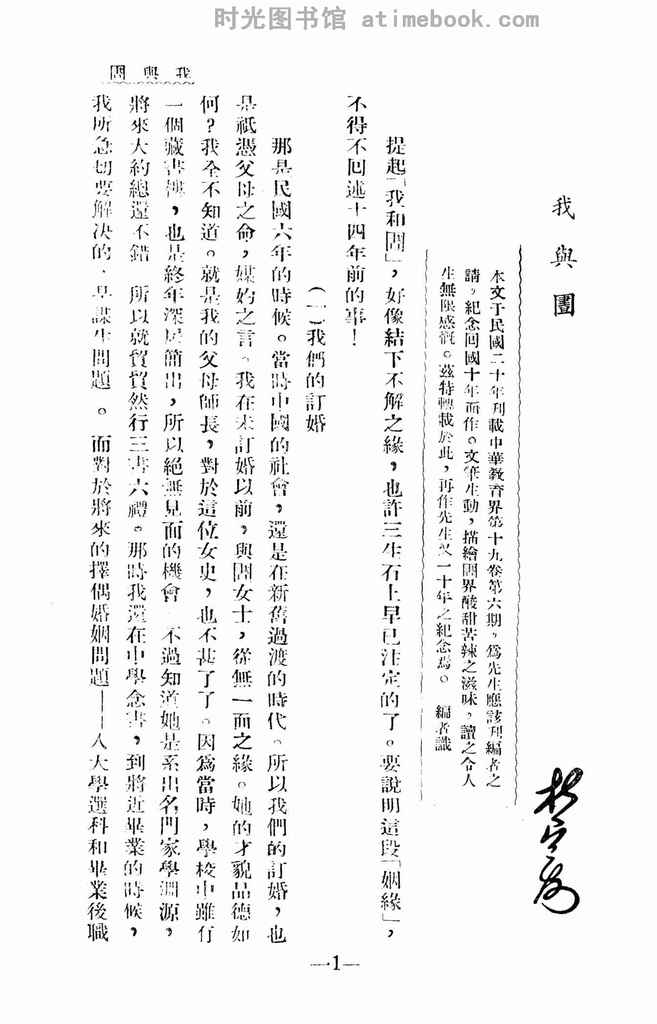 时光图书馆 atimebook.com
我與圕
我與圕
杜定友
本文于民國二十年刊載中華教育界第十九卷第六期，爲先生應該刊編者之
請，紀念回國十年而作。文筆生動，描繪圕界酸甜苦辣之滋味，讀之令人
生無限感慨。茲特轉載於此，再作先生又一十年之紀念焉。　編者識
提起「我和圕」，好像結下不解之緣，也許三生石上早已注定的了。要說明這段「姻緣」，
不得不回述十四年前的事！
（一）我們的訂婚
那是民國六年的時候。當時中國的社會，還是在新舊過渡的時代。所以我們的訂婚，也
是祇憑父母之命，媒妁之言。我在未訂婚以前，與圕女士，從無一面之緣。她的才貌品德如
何？我全不知道。就是我的父母師長，對於這位女史，也不甚了了。因爲當時，學校中雖有
一個藏書樓，也是終年深居簡出，所以絕無見面的機會　不過知道她是系出名門家學淵源，
將來大約總還不錯　所以就貿貿然行三書六禮。那時我還在中學念書，到將近畢業的時候，
我所急切要解決的，是謀生問題。而對於將來的擇偶婚姻問題——入大學選科和畢業後職
—1—